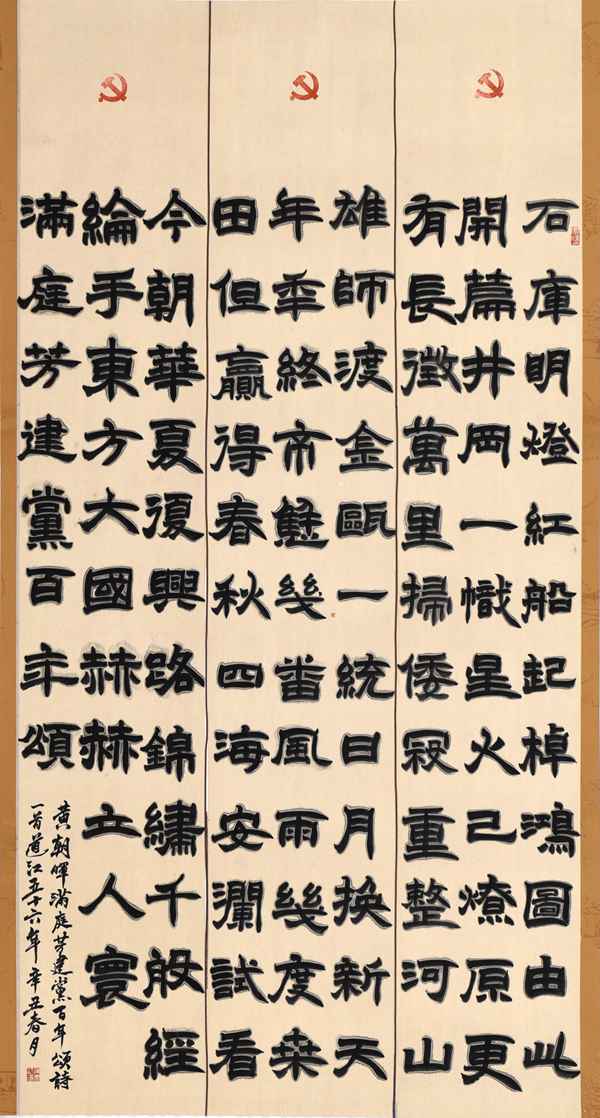 石庫明燈紅船起棹鴻圖由此
開篇井岡一幟星火已燎原更
有長徵萬里掃倭寇重整河山
雄師渡金甌一統日月換新天
年年終帝幾番風雨幾度桒
田但贏得春秋四海安瀾試看
今朝華夏復興路錦繡千般經
綸手東方大國赫赫立人寰
滿庭芳建黨百年頌
黄朝暉滿庭芳建黨百年頌詩
一首道江五十六年辛丑春月